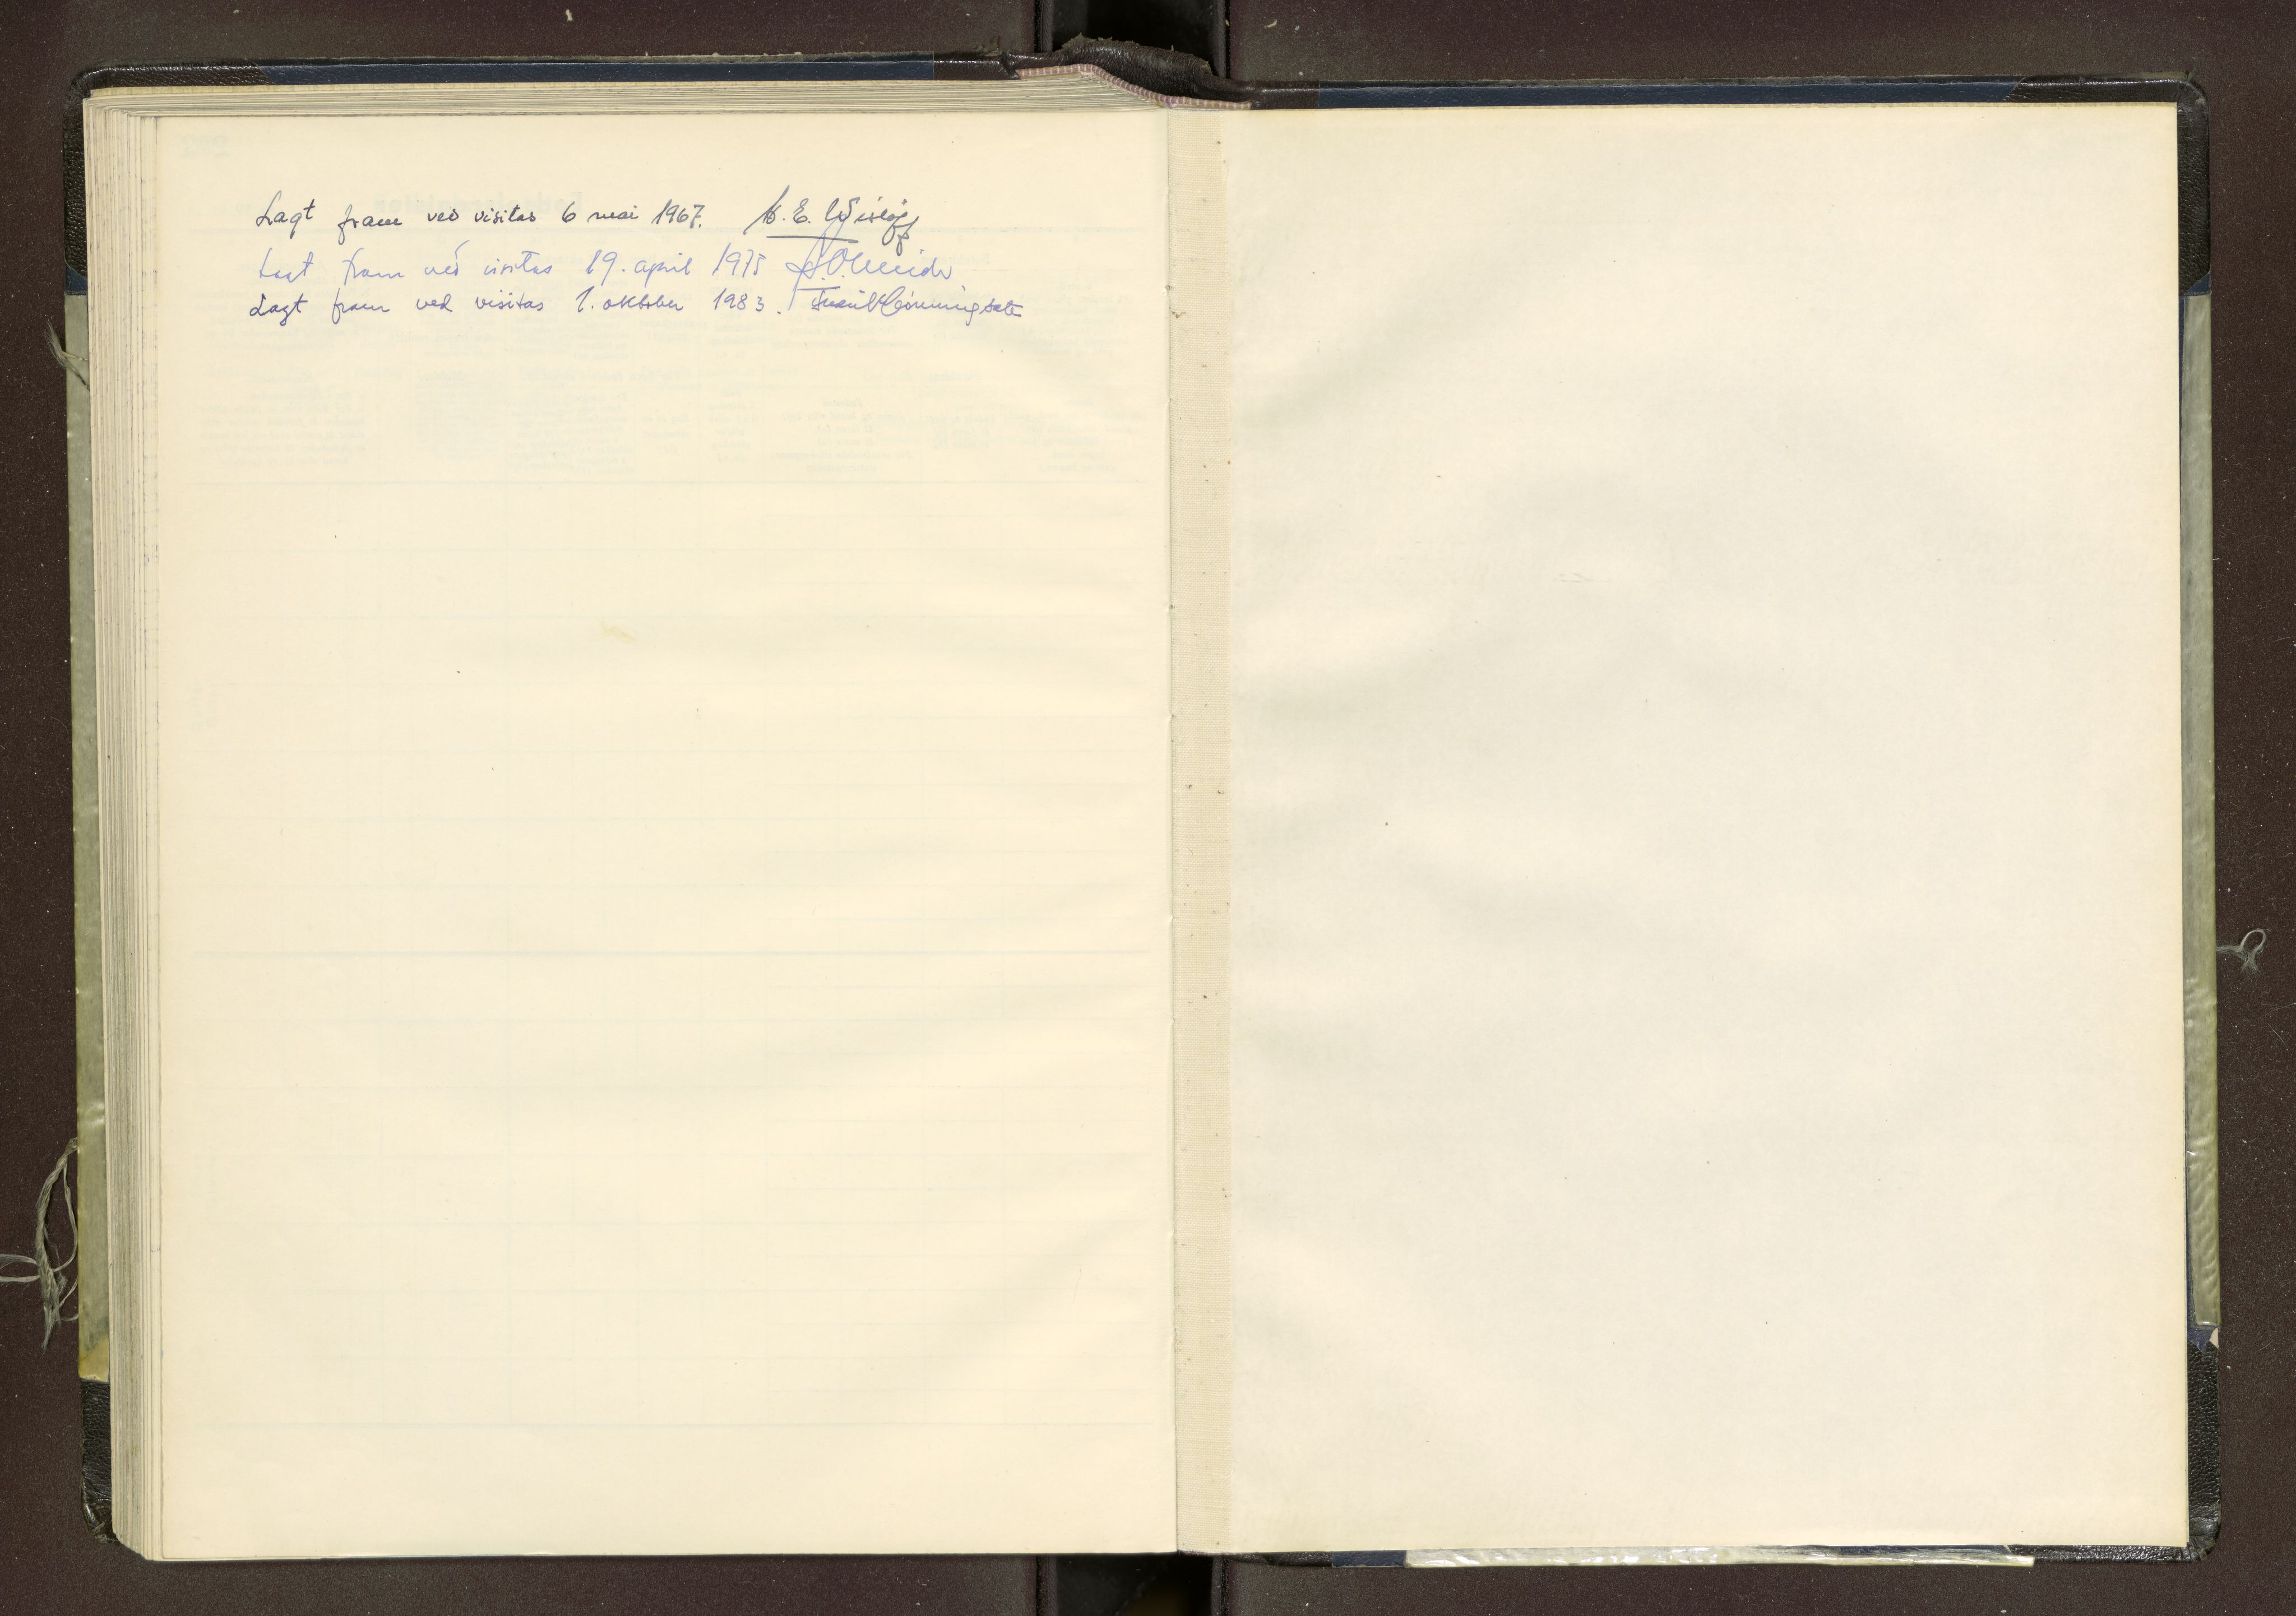 Lagt fram ved visitas 6 mai 1967. C. E. Wisløff
Lagt fram ved visitas 19. april 1975
Lagt fram ved visitas 1. oktober 1983.